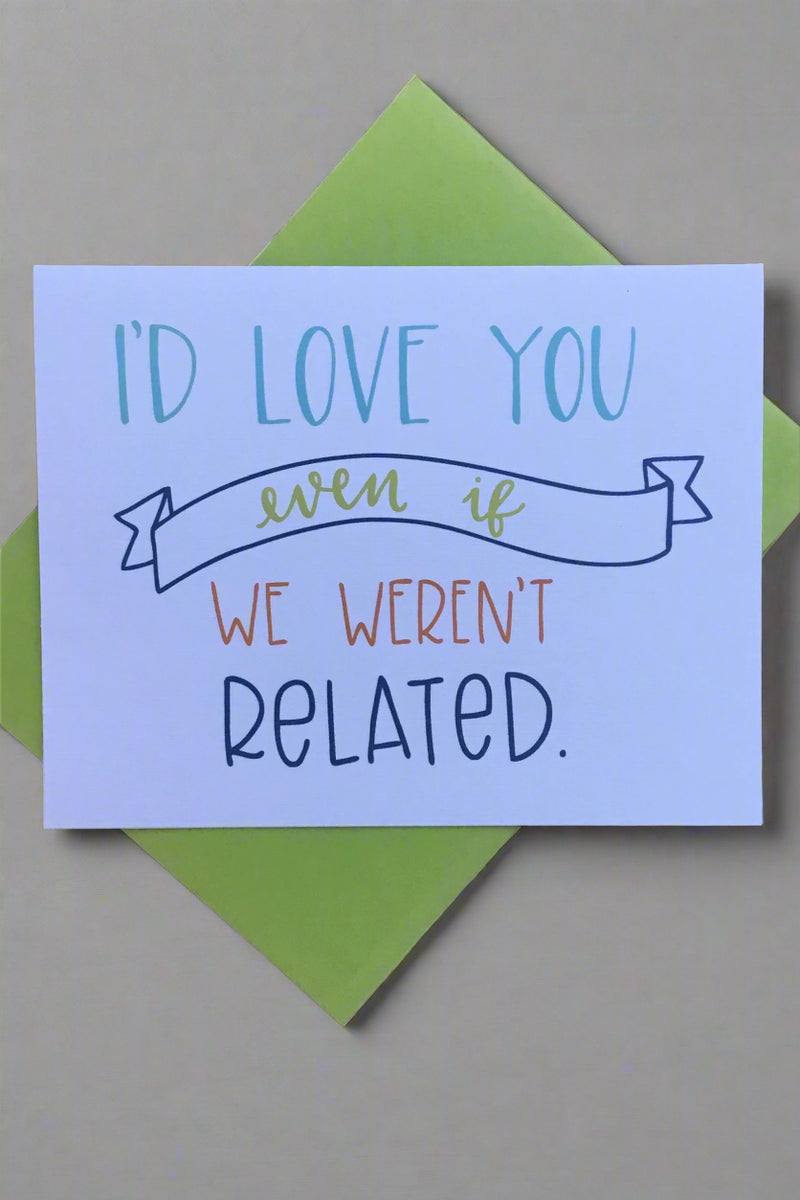 I'D LOVE YOU
even if
WE WEREN'T
ReLATeD.